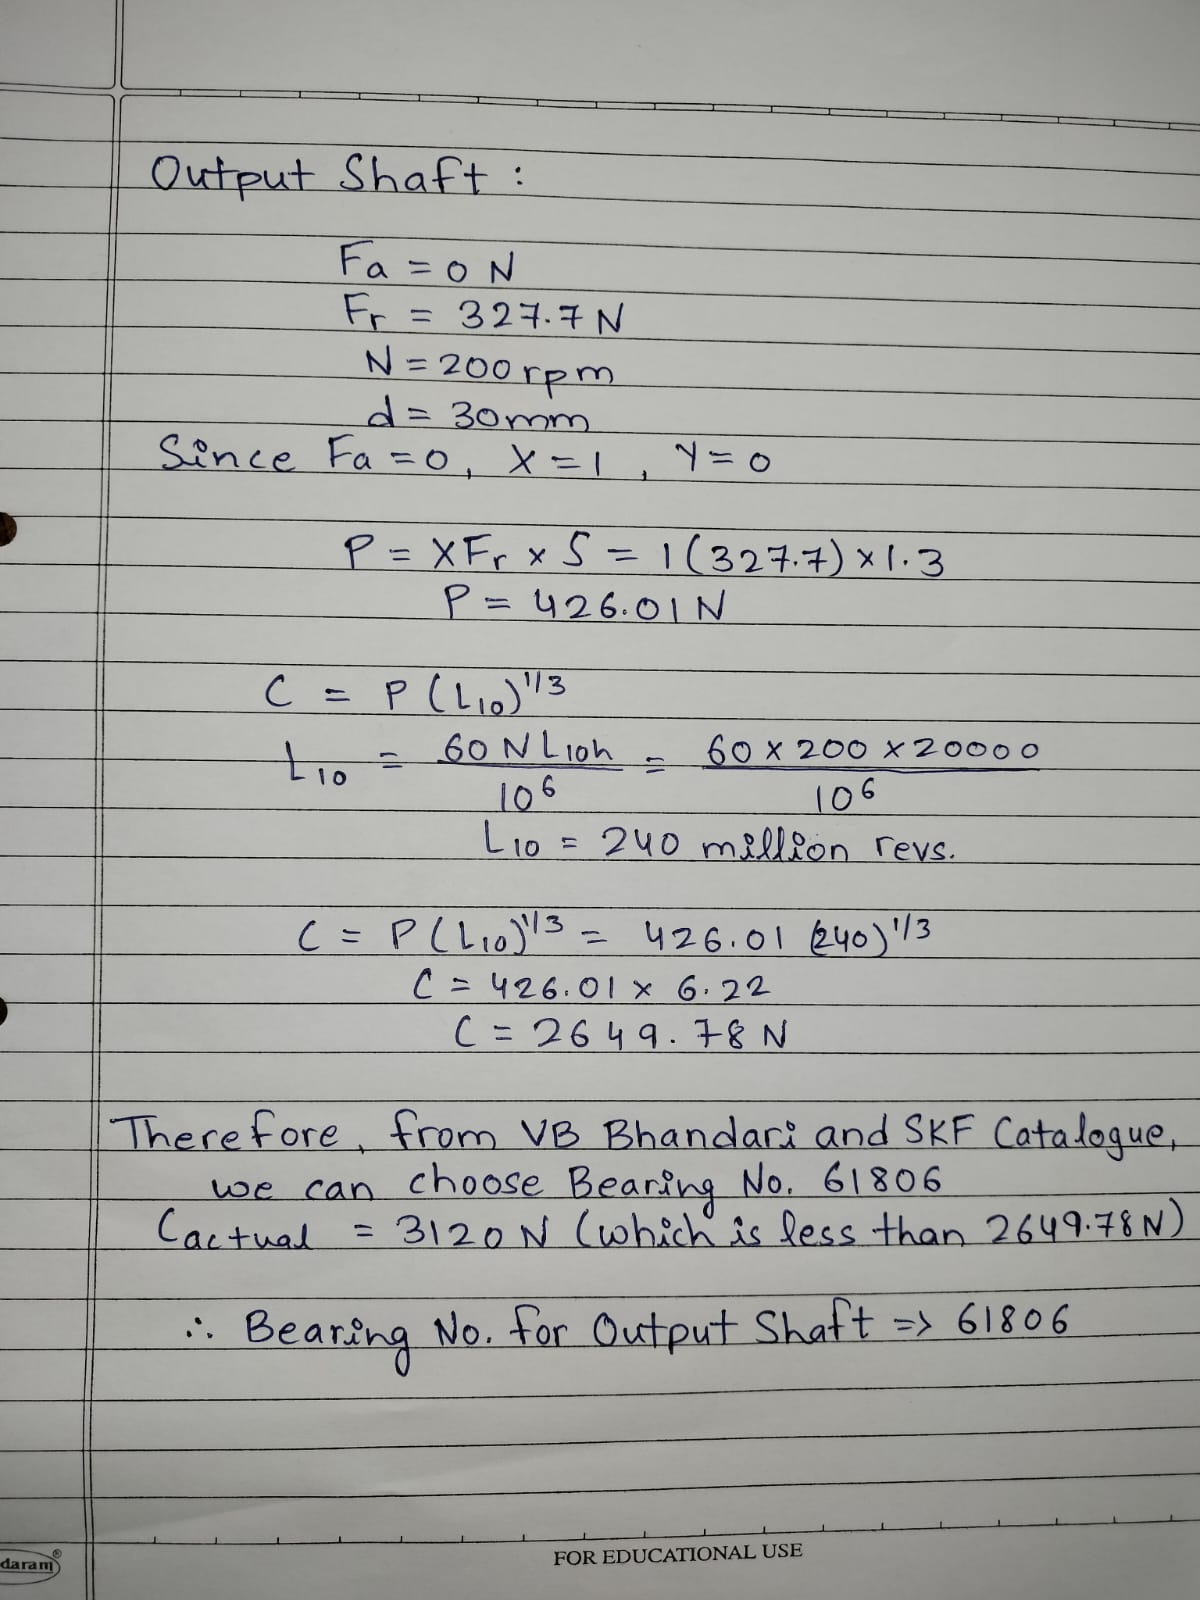 Output Shaft :
Fa = 0 N
Fr = 327.7 N
N = 200 rpm
d = 30mm
Since Fa = 0, X = 1, Y = 0
P = XFr x S = 1(327.7) x 1.3
P = 426.01 N
C = P (L10)^1/3
L10 = 60 N L10h / 10^6 = 60 x 200 x 20000 / 10^6
L10 = 240 million revs.
C = P(L10)^1/3 = 426.01 (240)^1/3
C = 426.01 x 6.22
C = 2649.78 N
Therefore, from VB Bhandari and SKF Catalogue,
we can choose Bearing No. 61806
Cactual = 3120 N (which is less than 2649.78 N)
∴ Bearing No. for Output Shaft => 61806
daram®
FOR EDUCATIONAL USE